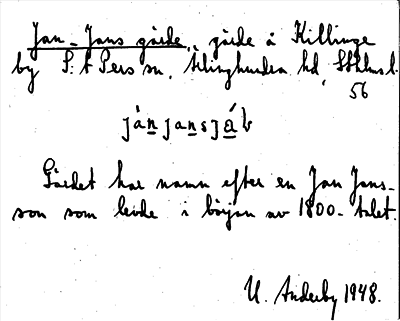 Jan-Jans gärde, gärde å Killinge
by S:t Pers sn, Seminghundra hd, Sthlms l.
56
jánjansjáb
Gärdet har namn efter en Jan Jans-
son som levde i början av 1800-talet.
U. Anderby 1948.